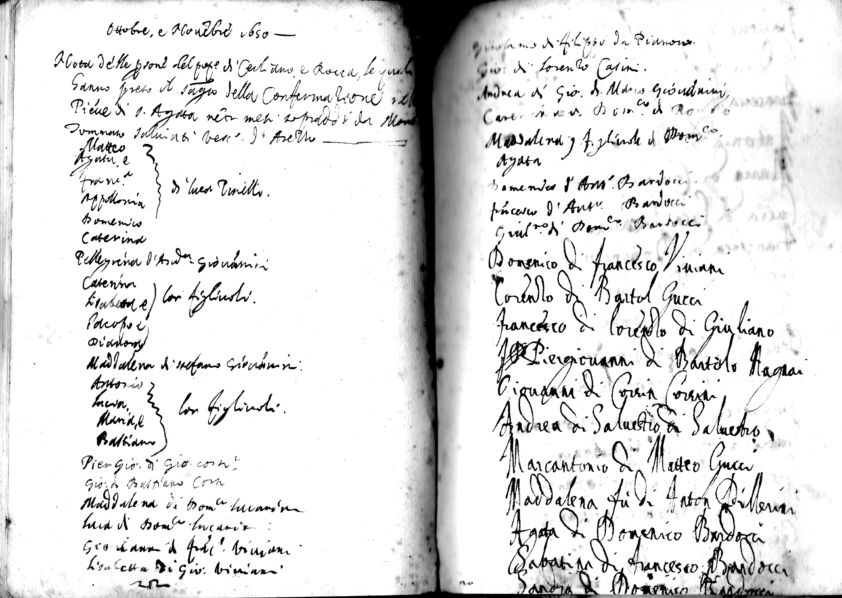 Ottobre, e Novēbre 1650
Nota delle psone del pop.º di Cerliano, e Rocca, le quali
hanno preso il Sag.to della Confermazione nella
Pieve di S. Agata ne
Tommaso Salviati Vesc.º d'
Matteo
Agata, e
Fran.ca
Appollonia
di Luca
Domenico
Caterina
Pellegrina d'And.rea Giovannini
Caterina
Lisabetta e
lor figliuoli.
Jacopo e
Pianora
Maddalena di Stefano Giovannini
Antonio
Lucia,
Maria, e
lor figliuoli.
Bastiano
Pier Gio. di Gio.
Gio. di Bastiano
Maddalena di Dom.co Lucarini
Luca di Dom.co Lucarini
Giovanni di Frac.º Viviani
Lisabetta di Gio. Viviani
di Filippo da Pianoro
Gio. di Lorenzo Casini.
Andrea di Gio. di Marco Giovannini
Caterina di Dom.co di
Maddalena figliuole di Dom.co
Agata
Domenico d'Ant.º Bardocci
Frācesco d'Ant.º Bardocci
Giul.no di Dom.co Bardocci
Domenico di Francesco Viviani
Lorenzo di Bartol Gucci
Francesco di Lorenzo di Giuliano
Piergiovanni di Bartolo
Giovanni di Corsin Corsini
Andrea di Salvestro di Salvestro
Marcantonio di Matteo Gucci
Maddalena fu di Anton Pillerini
Agata di Domenico Bardocci
Sabatina di Francesco Bardocci
Sandra di Domenico Bardocci